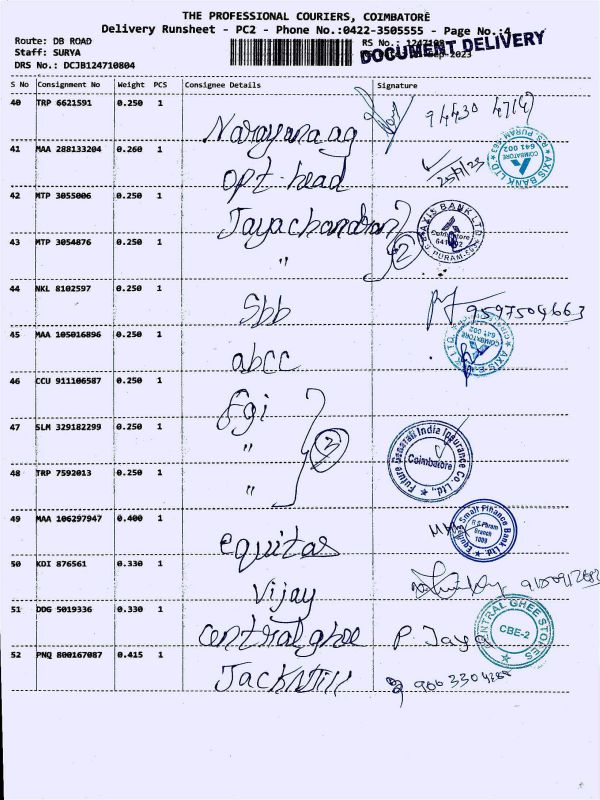 THE PROFESSIONAL COURIERS, COIMBATORE
Delivery Runsheet - PC2 - Phone No.:0422-3505555 - Page No.:4
Route: DB ROAD
RS No.:
DOCUMENT DELIVERY
Staff: SURYA
DRS No.: DCJB124710804
S No Consignment No Weight PCS Consignee Details Signature
40 TRP 6621591 0.250 1 Narayana ag
41 MAA 288133204 0.260 1 opt-head
AXIS BANK LTD. R.S. PURAM COIMBATORE 641 002
42 MTP 3055006 0.250 1 Jayachandran
43 MTP 3054876 0.250 1 " 2
AXIS BANK LTD Coimbatore
44 NKL 8102597 0.250 1 Sbb 9597504663
45 MAA 105016896 0.250 1 abcc
COIMBATORE 641 002
46 CCU 911106587 0.250 1 Fgi
47 SLM 329182299 0.250 1 "
48 TRP 7592013 0.250 1 "
Future Generali India Insurance Co. Ltd., Coimbatore
49 MAA 106297947 0.400 1 equitas
Equitas Small Finance Bank Ltd. R S Puram Branch
50 KDI 876561 0.330 1 Vijay
51 DDG 5019336 0.330 1 central ghee P. Jaya
CENTRAL GHEE STORES CBE-2
52 PNQ 800167087 0.415 1 JackNJill